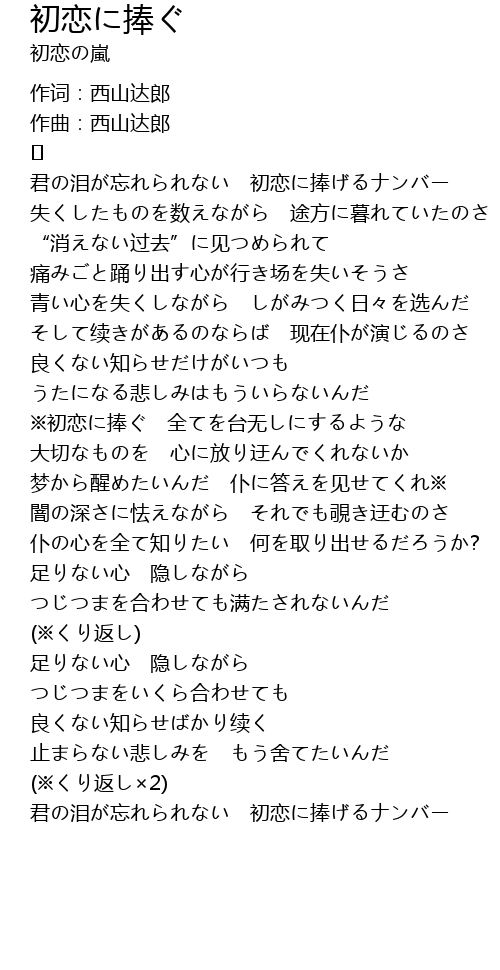 初恋に捧ぐ
初恋の嵐
作词：西山达郎
作曲：西山达郎
[]
君の泪が忘れられない　初恋に捧げるナンバー
失くしたものを数えながら　途方に暮れていたのさ
“消えない过去”に见つめられて
痛みごと踊り出す心が行き场を失いそうさ
青い心を失くしながら　しがみつく日々を选んだ
そして续きがあるのならば　现在仆が演じるのさ
良くない知らせだけがいつも
うたになる悲しみはもういらないんだ
※初恋に捧ぐ　全てを台无しにするような
大切なものを　心に放り迂んでくれないか
梦から醒めたいんだ　仆に答えを见せてくれ※
闇の深さに怯えながら　それでも覗き迂むのさ
仆の心を全て知りたい　何を取り出せるだろうか?
足りない心　隐しながら
つじつまを合わせても满たされないんだ
(※くり返し)
足りない心　隐しながら
つじつまをいくら合わせても
良くない知らせばかり续く
止まらない悲しみを　もう舍てたいんだ
(※くり返し×2)
君の泪が忘れられない　初恋に捧げるナンバー